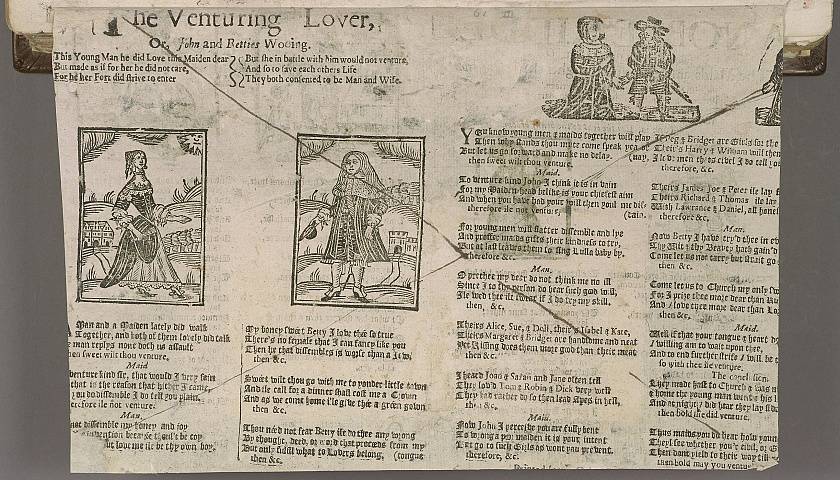 The Venturing Lover,
Or, John and Betties Wooing.
This Young Man he did Love this Maiden dear
But made as if for her he did not care,
For he her Fort did strive to enter
But she in battle with him would not venture,
And so to save each others Life
They both consented to be Man and Wife.
Man and a Maiden lately did walk
Together, and both of them lovely did talk
man replys none doth us assault
then sweet wilt thou venture.
Maid
venture kind sir, that would I very fain
that is the reason that hither I came,
you do dissemble I do tell you plain,
therefore ile not venture.
Man.
not dissemble my honey and joy
invention because thou'lt be coy
but love me ile be thy own boy,
My honey sweet Betty I love thee so true
There's no female that I can fancy like you
Then he that dissembles is worse than a Jew,
then &c.
Sweet wilt thou go with me to yonder little town
And ile call for a dinner shall cost me a Crown
And as we come home ile give thee a green gown
then &c.
Thou need not fear Betty ile do thee any wrong
By thought, deed, or word that proceeds from my
But only fulfil what to Lovers belong, (tongue
then &c.
You know young men & maids together will play
Then why stands thou mute come speak yea or
But let us go forward and make no delay. (nay,
then sweet wilt thou venture.
Maid.
To venture kind John I think it is in vain
For my Maiden-head belike is your chiefest aim
And when you have had your will then youl me dis-
therefore ile not venture, (dain.
For young men will flatter dissemble and lye
And proffer maids gifts their kindness to try,
But at last leaves them to sing Lulla baby by,
therefore &c.
Man,
O prethee my dear do not think me no ill
Since I to thy person do bear such good will,
Ile wed thee ile swear if I do try my skill,
then, &c.
Theirs Alice, Sue, & Doll, their's Isabel & Kate,
Theirs Margaret & Bridget are handsome and neat
Yet Kissing does them more good than their meat
then &c.
I heard Joan & Sarah and Jane often tell
They lov'd Tom & Robin & Dick very well
They had rather do so then lead Apes in hell,
then, &c.
Maid.
Now John I perceive you are fully bent
To wrong a poor maiden it is your intent
But go to such Girls as wont you prevent.
therefore, &c.
If Peg & Bridget are Girls for the
Their's Harry & William will then
Ile be men that is civel I do tell you
therefore, &c.
Theirs James, Joe & Peter ile lay
Theirs Richard & Thomas ile lay
With Lawrance & Daniel, all honest
therefore &c.
Man.
Now Betty I have try'd thee in
Thy Wit & thy Beauty hath gain'd
Come let us not tarry but strait go
then, &c.
Come let us to Church my only
For I prize thee more dear than
And I love thee more dear than
then &c.
Maid.
Well if that your tongue & heart
I willing am to wait upon thee,
And to end further strife I will be
so with thee ile venture.
The conclusion.
They made hast to Church & was
& home the young man went
And at night I did hear they lay
then bold she did venture.
Thus maids you do hear how young
They'l try whether you'r civil, or
Then dont yield to their way till
then bold may you venture